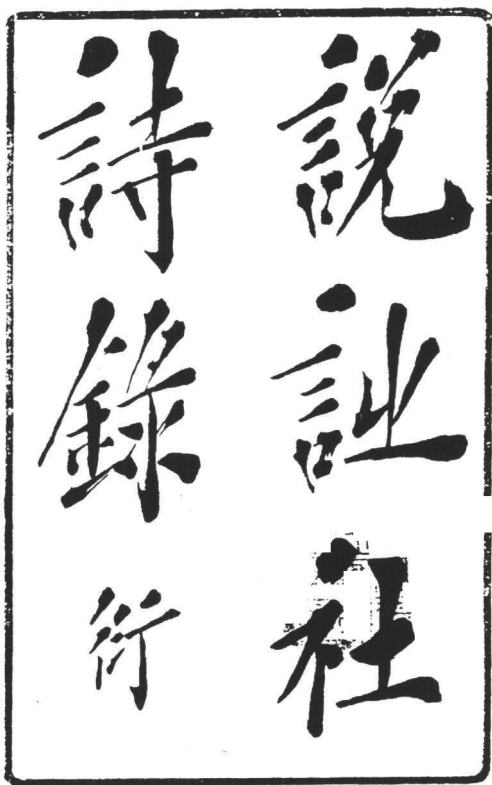 說𧥳社
詩錄
衍